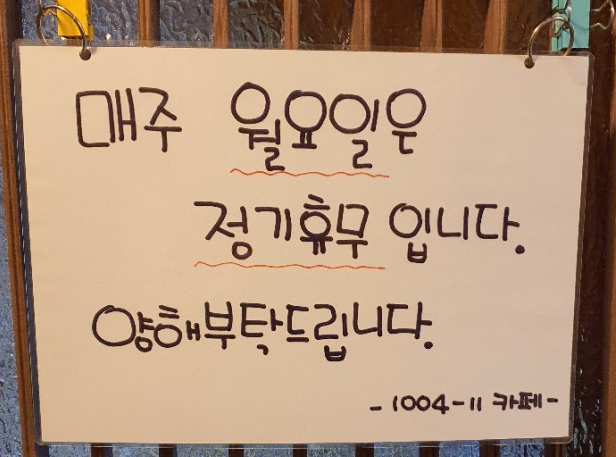 매주 월요일은
정기휴무 입니다.
양해부탁드립니다.
- 1004-11 카페 -